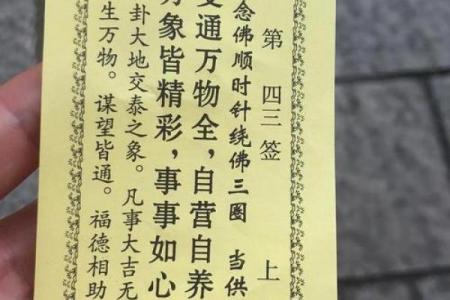 第四三签 上
念佛顺时针绕佛三圈 当供
交通万物全，自营自养
万象皆精彩，事事如心
卦大地交泰之象。凡事大吉无
生万物。谋望皆通。福德相助